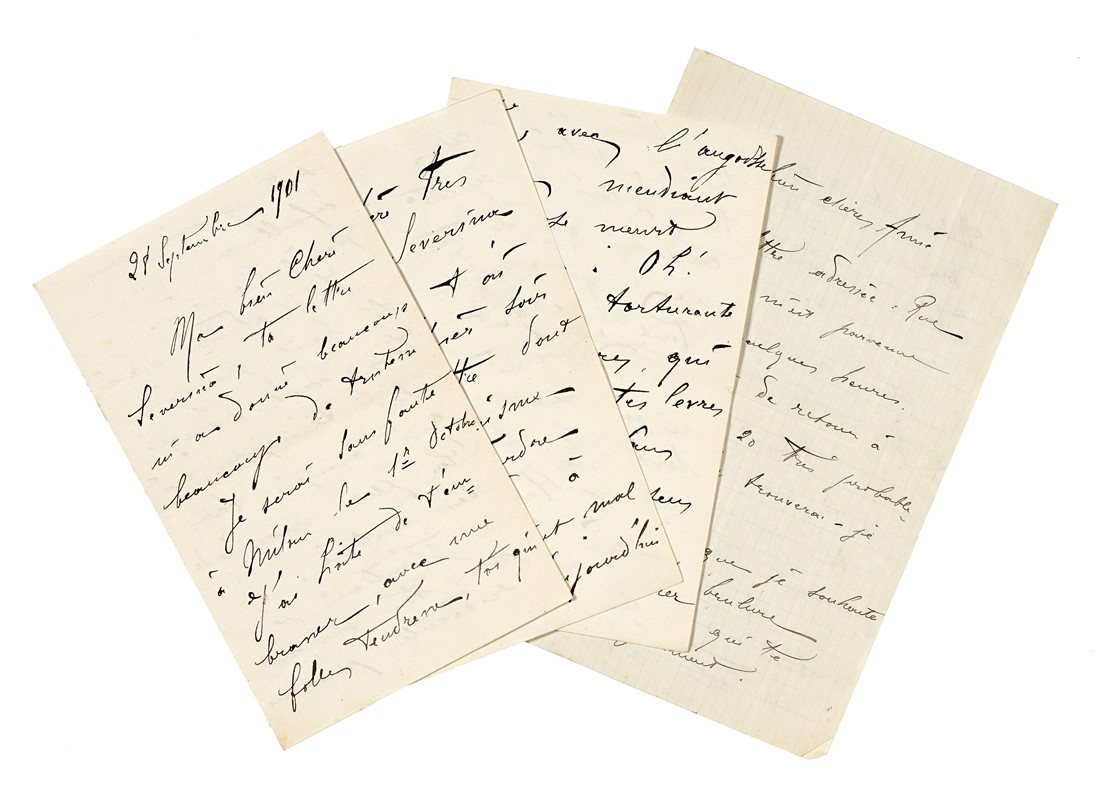 28 Septembre 1901
Mon bien Cheri
Severino, ta lettre
m'a donné beaucoup
beaucoup de tristesse
Je serai sans faute
à Milan le 1er Octobre
J'ai hâte de t'em
brasser, avec une
folle tendresse, toi qui
Tres
Severino
et où
sous
dont
isme
à
mal
avec l'angoisse
mendiant
se meurt
. Oh!
torturante
qui
tes levres
Sans
sens
ujourd'hui
bien chère Amie
ttre adressée : Rue
m'est parvenue
uelques heures.
de retour à
20 Très probable-
trouverai-je
que je souhaite
brulure
qui te
ment.